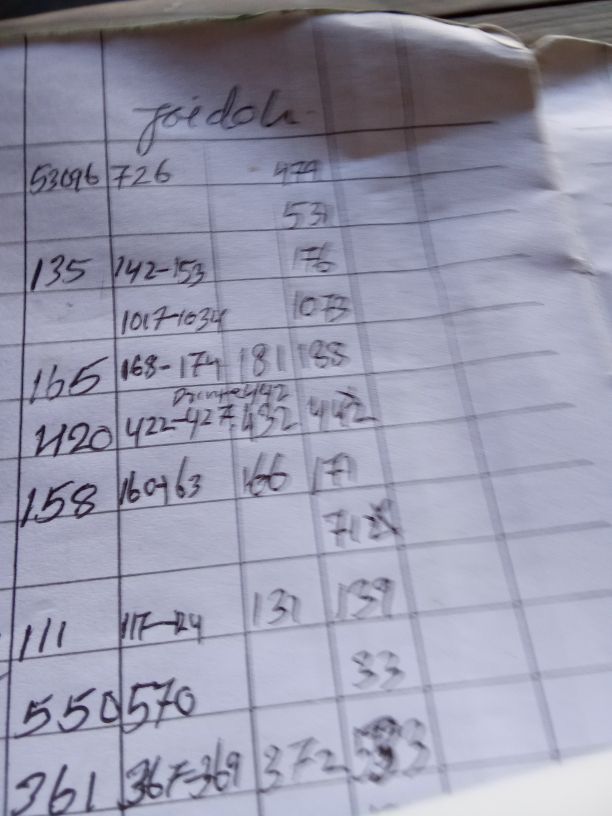 joidoh
53096 726 479
531
135 142-153 176
1017-1034 1073
165 168-174 181 188
442
420 422-427 432 442
158 160-163 166 171
111 117-124 131 139
33
550 570
361 367-369 372